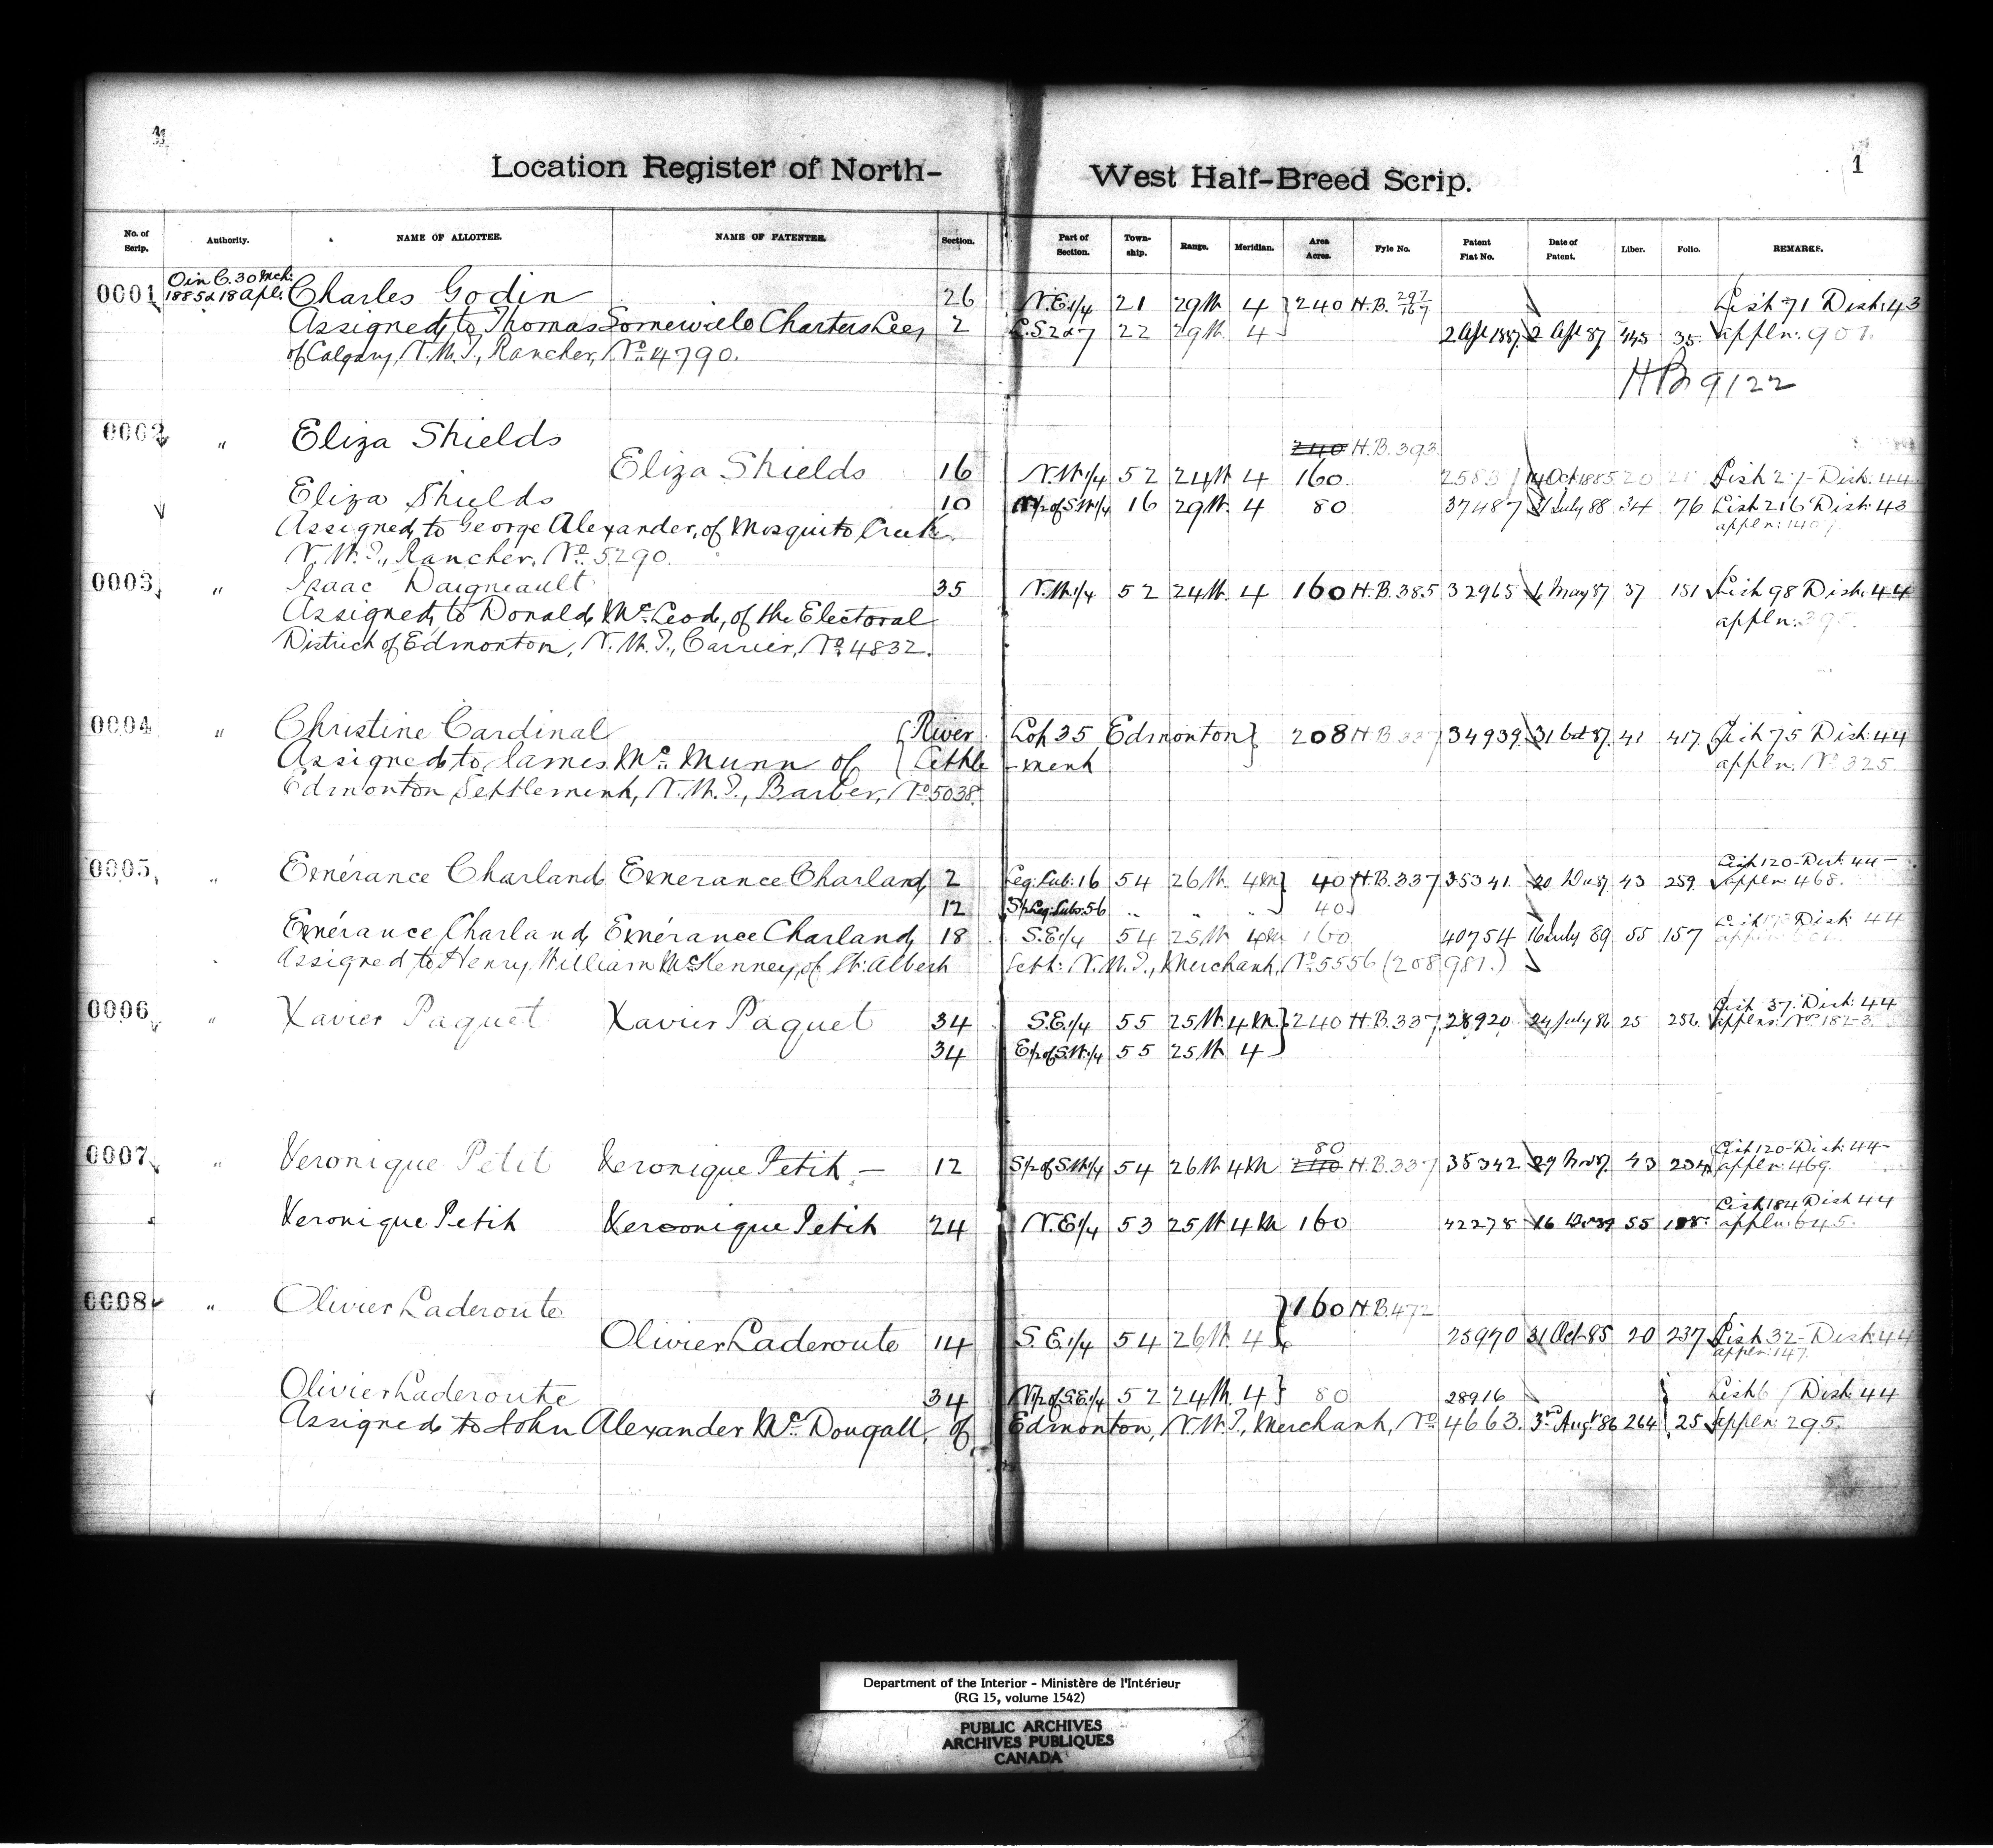 Location Register of North-West Half-Breed Scrip.
1
No. of Scrip. Authority. NAME OF ALLOTTEE. NAME OF PATENTEE. Section. Part of Section. Town-ship. Range. Meridian. Area Acres. Fyle No. Patent Fiat No. Date of Patent. Liber. Folio. REMARKS.
0001 O in C. 30 Mch: 1885 & 18 Apl: Charles Godin 26 N.E.1/4 21 29W. 4 } 240 H.B. 297/167 List 71 Dist: 43
Assigned to Thomas Somerville Charters Lee, 2 L.S 2 & 7 22 29W. 4 2 Apl 1887 2 Apl 87 35 appln: 901.
of Calgary, N.W.T., Rancher, No. 4790.
HB 9122
0002 " Eliza Shields 240 H.B. 393
Eliza Shields 16 N.W.1/4 52 24W. 4 160 14 Oct 1885 20 List 27 - Dist: 44
Eliza Shields 10 16 29W. 4 80 37487 31 July 88 34 76 List 216 Dist: 43
Assigned to George Alexander, of Mosquito Creek appln:
N.W.T., Rancher, No. 5290.
0003 " Isaac Daigneault 35 N.W.1/4 52 24W. 4 160 H.B. 385 32965 May 87 37 151 List 98 Dist: 44
Assigned to Donald McLeod, of the Electoral appln: 395.
District of Edmonton, N.W.T., Carrier, No. 4832.
0004 " Christine Cardinal { River Lot 35 Edmonton } 208 H.B. 337 34939 31 Oct 87 41 417 List 75 Dist: 44
Assigned to James McMunn of { Settle-ment appln. No. 325.
Edmonton Settlement, N.W.T., Barber, No. 5038.
0005 " Exnérance Charland Exnerance Charland 2 Leg: Sub: 16 54 26W. 4M } 40 H.B. 337 35341 20 43 259 List 120 - Dist. 44 - appln: 468.
12 S1/2 Leg: Subs: 5 6 " " " 40
Exnérance Charland, Exnérance Charland, 18 S.E.1/4 54 25W. 4M 160 40754 16 July 89 55 157 Dist 44
Assigned to Henry William McKenney, of St. Albert Sett: N.W.T., Merchant, No. 5556 (208981.)
0006 " Xavier Paquet Xavier Paquet 34 S.E.1/4 55 25W. 4M. } 240 H.B. 337 28920 24 July 86 25 256 List 37. Dist: 44 applns: No. 182-3
34 E1/2 of S.W.1/4 55 25W. 4
0007 " Veronique Petit Veronique Petit - 12 S1/2 of S.W1/4 54 26W. 4M 80 240 H.B. 337 35342 29 Nov 87 43 234 List 120 - Dist: 44 - appln: 469.
Veronique Petit Veronique Petit 24 N.E1/4 53 25W. 4M 160 42278 16 55 List 184 Dist 44 appln: 645.
0008 " Olivier Laderoute } 160 H.B. 472
Olivier Laderoute 14 S.E.1/4 54 26W. 4 25970 31 Oct 85 20 237 List 32 - Dist: 44 appln: 147.
Olivier Laderoute 34 N1/2 of S.E1/4 52 24W. 4 } 80 28916 Dist 44
Assigned to John Alexander McDougall, of Edmonton, N.W.T., Merchant, No. 4663. 3rd Augt 86 264 25 appln: 295.
Department of the Interior - Ministère de l'Intérieur
(RG 15, volume 1542)
PUBLIC ARCHIVES
ARCHIVES PUBLIQUES
CANADA